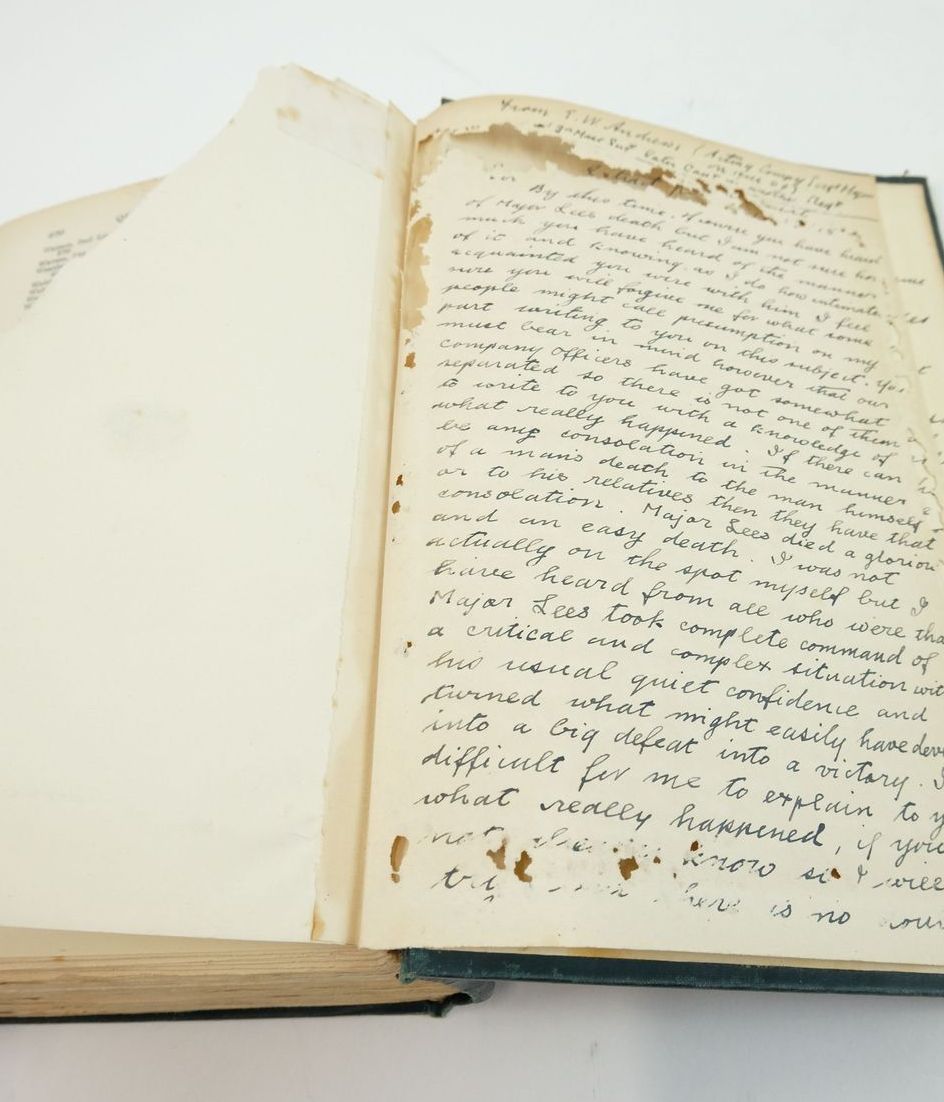 From T. W. Andrews (Acting Company
later
By this time, of course you have heard
of Major Lees death but I am not sure how
much you have heard of the manner
of it and knowing as I do how intimately
acquainted you were with him I feel
sure you will forgive me for what some
people might call presumption on my
part writing to you on this subject. You
must bear in mind however that our
company officers have got somewhat
separated so there is not one of them
to write to you with a knowledge of
what really happened. If there can
be any consolation in the manner
of a man's death to the man himself
or to his relatives then they have that
consolation. Major Lees died a glorious
and an easy death. I was not
actually on the spot myself but I
have heard from all who were tha
Major Lees took complete command of
a critical and complex situation wit
his usual quiet confidence and
turned what might easily have deve
into a big defeat into a victory.
difficult for me to explain to y
what really happened, if you
not know so I will
try is no